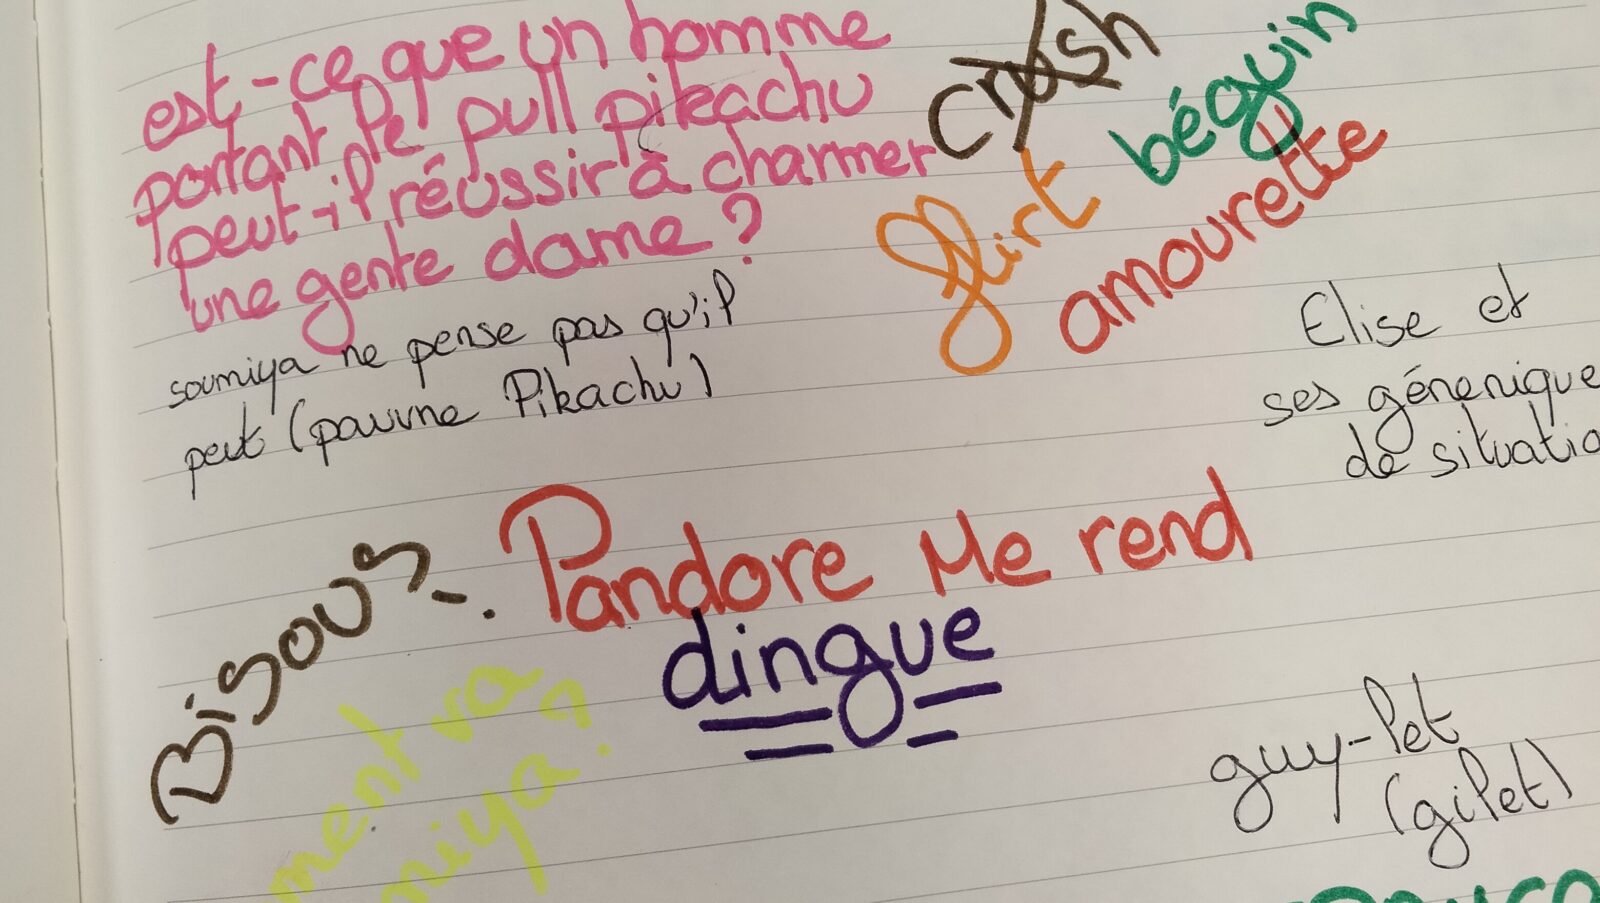 est-ce que un homme
portant le pull pikachu
peut-il réussir à charmer
une gente dame ?
soumiya ne pense pas qu'il
peut (pauvre Pikachu)
crush
flirt
béguin
amourette
Elise et
ses génerique
de situatio
Bisous
Pandore Me rend
dingue
ment va
miya ?
guy-let
(gilet)